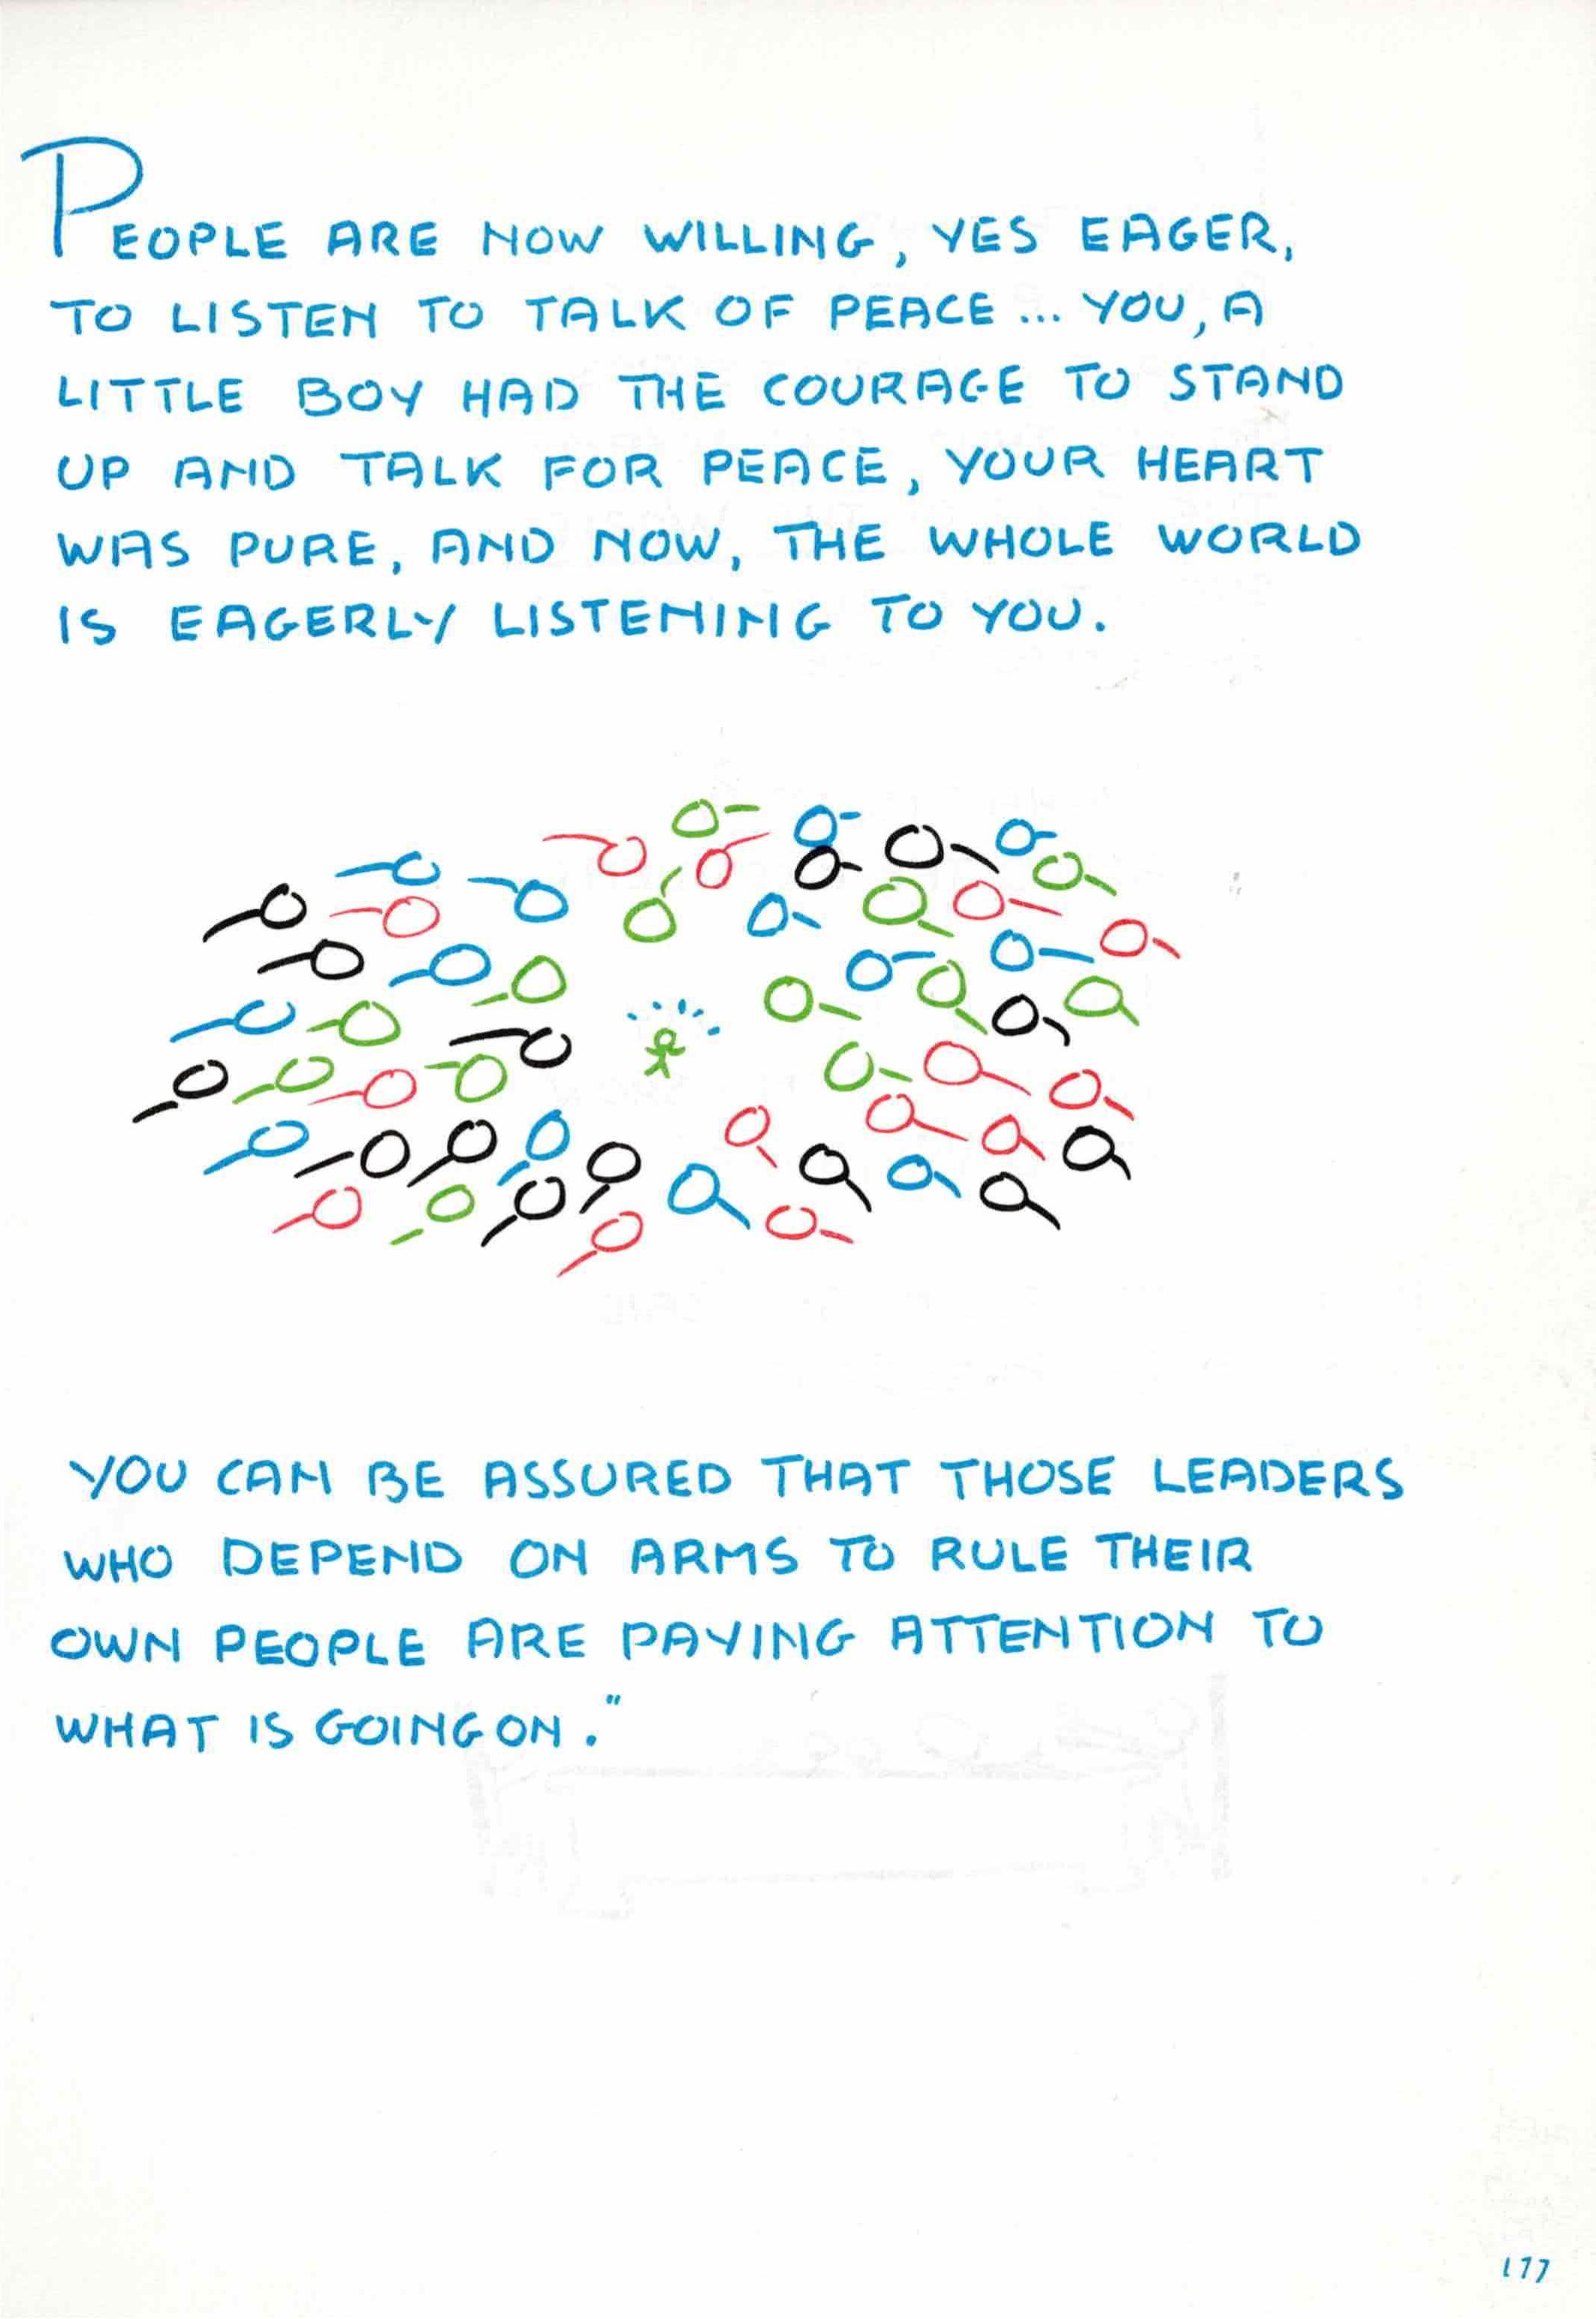 PEOPLE ARE NOW WILLING, YES EAGER,
TO LISTEN TO TALK OF PEACE ... YOU, A
LITTLE BOY HAD THE COURAGE TO STAND
UP AND TALK FOR PEACE, YOUR HEART
WAS PURE, AND NOW, THE WHOLE WORLD
IS EAGERLY LISTENING TO YOU.
YOU CAN BE ASSURED THAT THOSE LEADERS
WHO DEPEND ON ARMS TO RULE THEIR
OWN PEOPLE ARE PAYING ATTENTION TO
WHAT IS GOING ON."
177